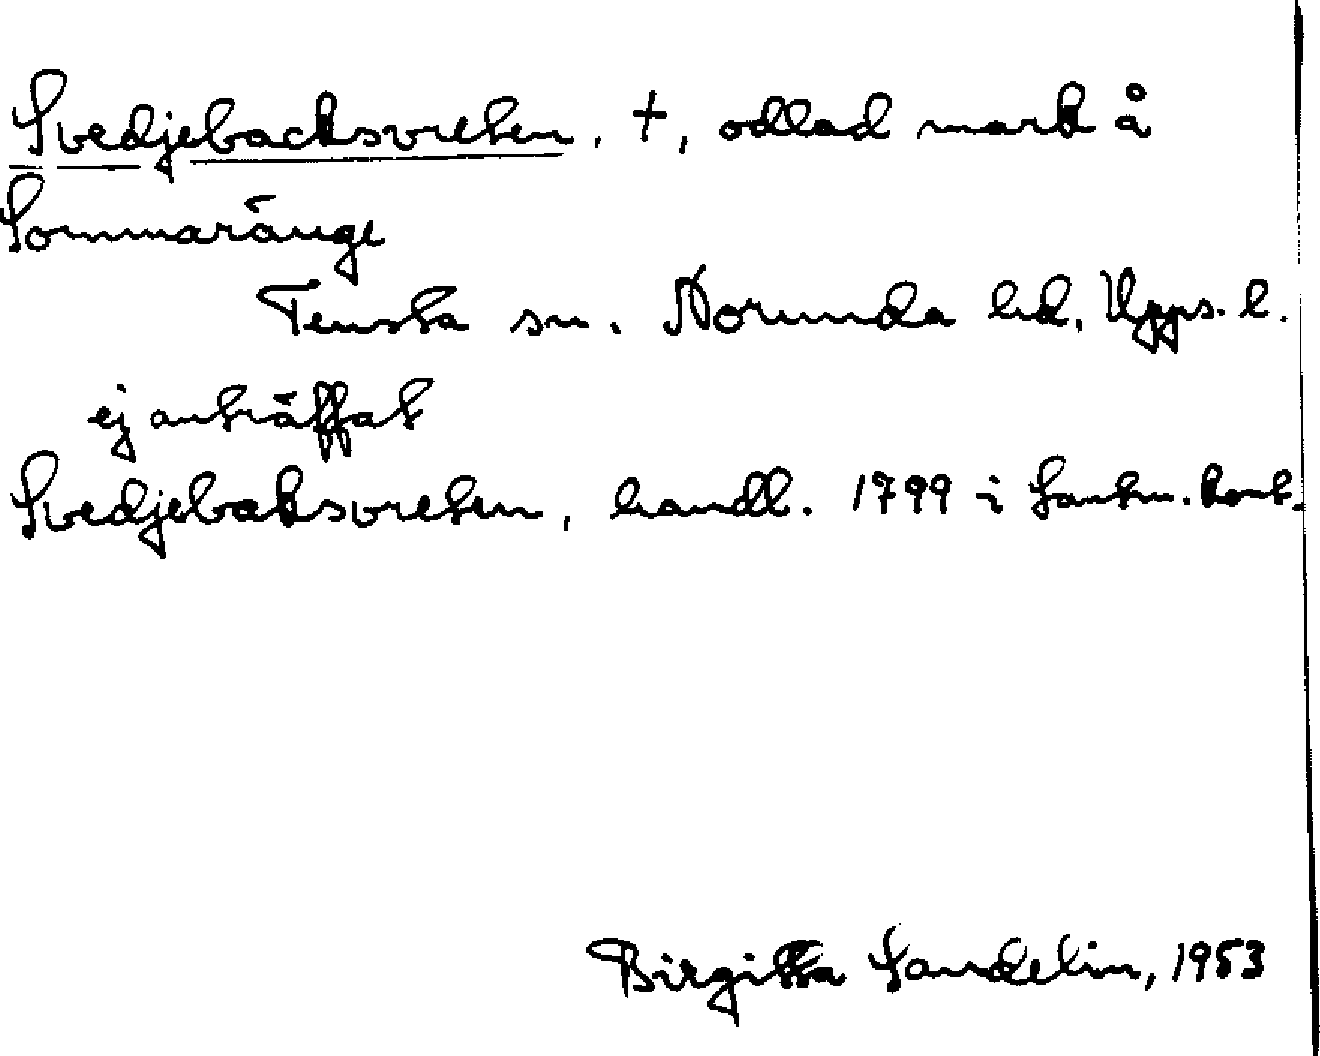 Svedjebacksvreten, +, odlad mark å
Sommaränge
Tensta sn. Norunda hd, Upps. l.
ej anträffat
Svedjebaksvreten, handl. 1799 i Lantm.kont.
Birgitta Sandelin, 1953